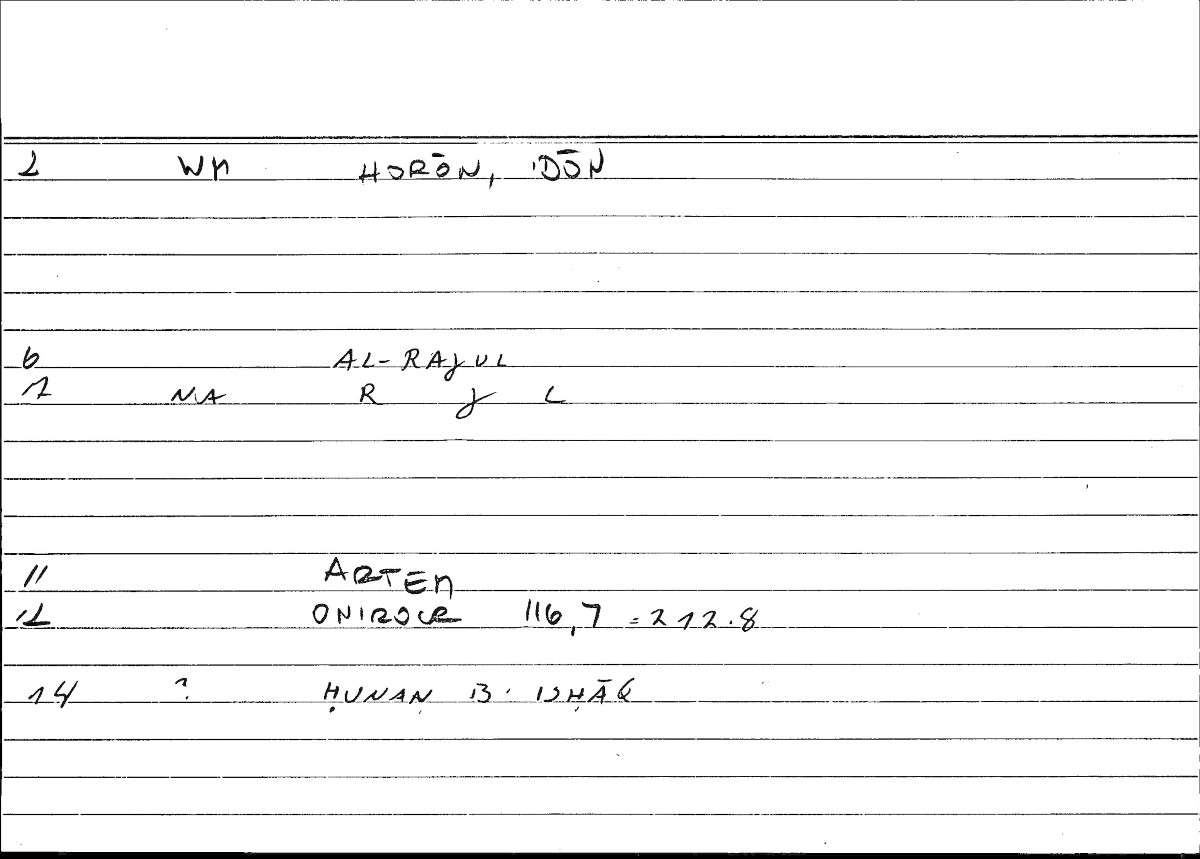 2 WM HORŌN, 'DŌN
6 AL-RAJUL
7 NA R J L
11 ARTEM
12 ONIROCR 116,7 = 212.8
14 ? ḤUNAN B. ISḤĀQ